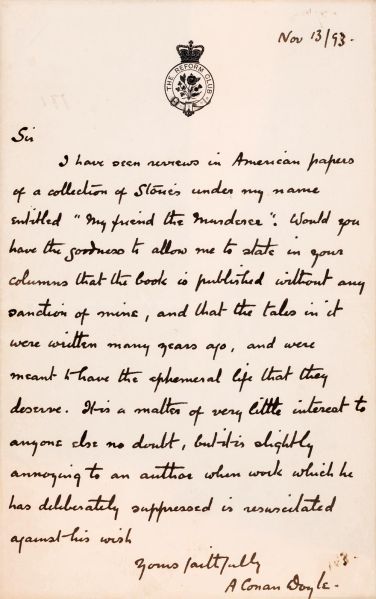 Nov 13/93.
THE REFORM CLUB
Sir
I have seen reviews in American papers
of a collection of Stories under my name
entitled "My friend the Murderer". Would you
have the goodness to allow me to state in your
columns that the book is published without any
sanction of mine, and that the tales in it
were written many years ago, and were
meant to have the ephemeral life that they
deserve. It is a matter of very little interest to
anyone else no doubt, but it is slightly
annoying to an author when work which he
has deliberately suppressed is resuscitated
against his wish
Yours faithfully
A Conan Doyle.